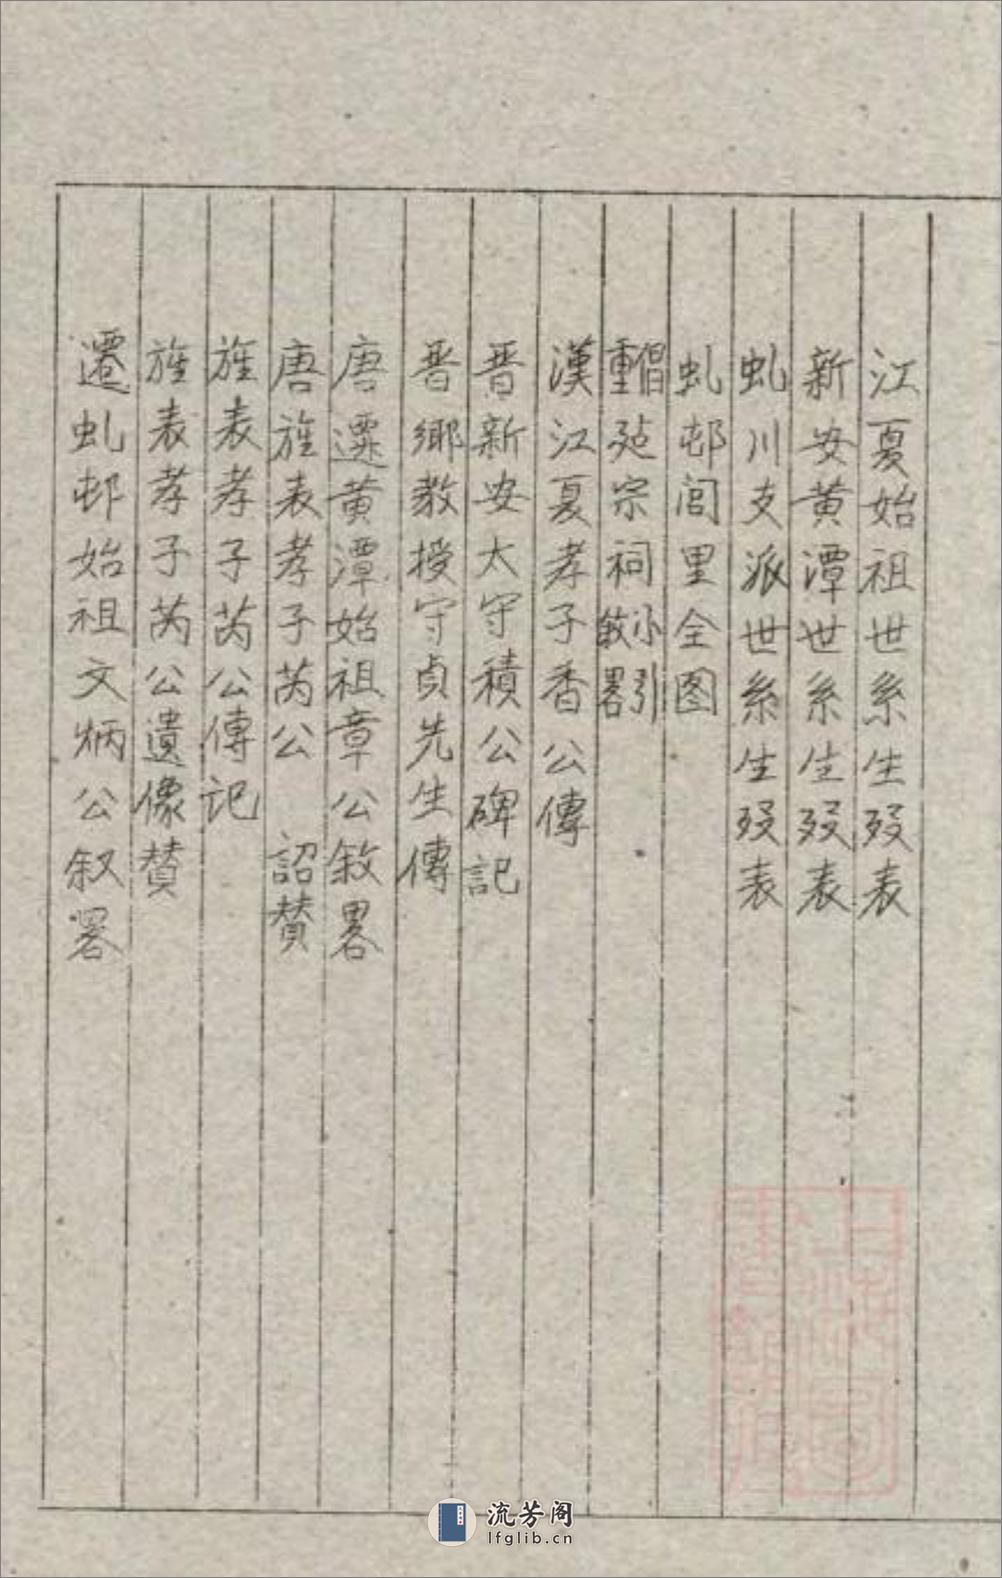 江夏始祖世系生歿表
新安黄潭世系生歿表
虬川支派世系生歿表
虬邨閭里全图
重倡建宗祠小引敘畧
漢江夏孝子香公傳
晋新安太守積公碑記
晋鄉教授守貞先生傳
唐遷黄潭始祖章公敘畧
唐旌表孝子芮公 詔贊
旌表孝子芮公傳记
旌表孝子芮公遺像贊
遷虬邨始祖文炳公叙畧
流芳阁
lfglib.cn